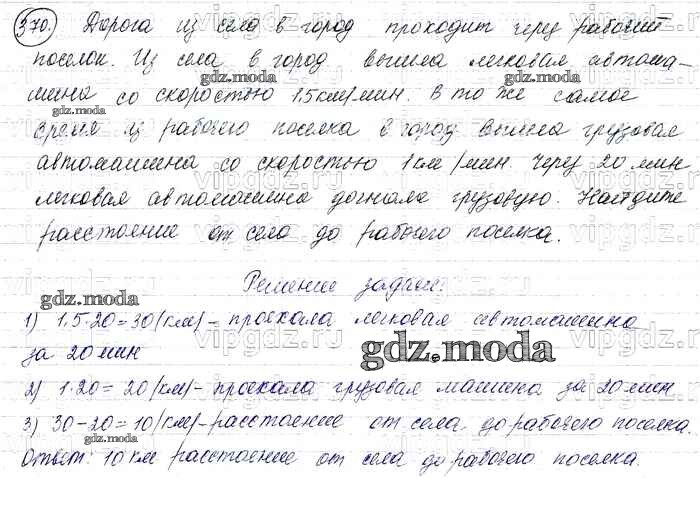 370. Дорога из села в город проходит через рабочий
поселок. Из села в город вышла легковая автома-
шина со скоростью 1,5 км/мин. В то же самое
время из рабочего поселка в город вышла грузовая
автомашина со скоростью 1 км/мин. Через 20 мин
легковая автомашина догнала грузовую. Найдите
расстояние от села до рабочего поселка.
Решение задачи:
1) 1,5·20=30(км) - проехала легковая автомашина
за 20 мин
2) 1·20= 20(км) - проехала грузовая машина за 20 мин
3) 30-20=10(км) - расстояние от села до рабочего поселка.
Ответ: 10 км расстояние от села до рабочего поселка.
gdz.moda
gdz.moda
gdz.moda
gdz.moda
gdz.moda
gdz.moda
vipgdz.ru